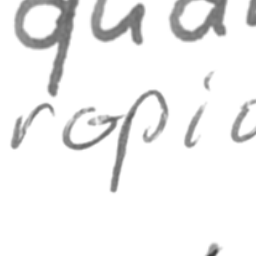 qua
ropic